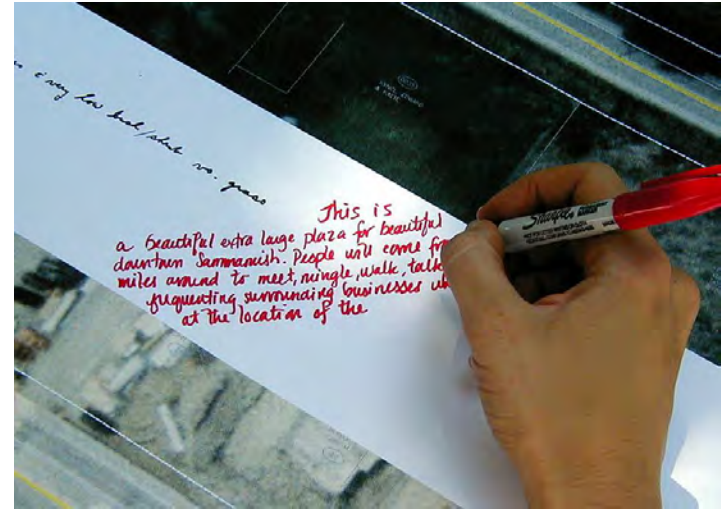 a very low bush/shrub vs. grass
This is
a beautiful extra large plaza for beautiful
downtown Sammamish. People will come
miles around to meet, mingle, walk, talk
frequenting surrounding businesses
at the location of the
Sharpie